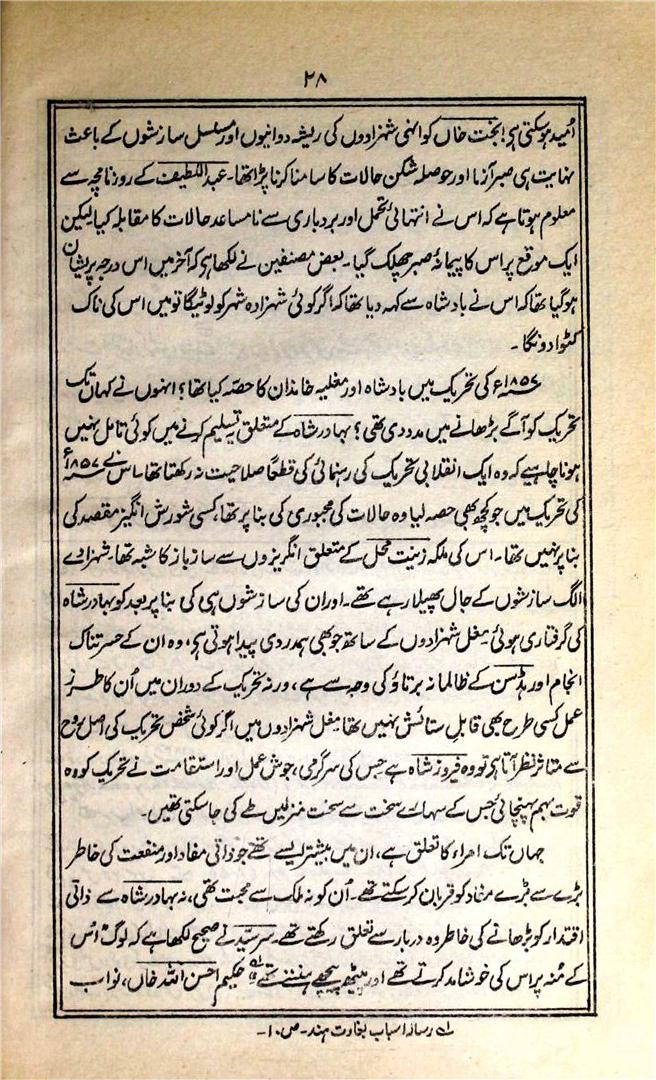 ۲۸
اُمید ہوسکتی ہی! بخت خاں کو انہی شہزادوں کی ریشہ دوانیوں اور مسلسل سازشوں کے باعث
نہایت ہی صبر آزما اور حوصلہ شکن حالات کا سامنا کرنا پڑا تھا۔ عبداللطیف کے روزنامچہ سے
معلوم ہوتا ہے کہ اس نے انتہائی تحمل اور بردباری سے نامساعد حالات کا مقابلہ کیا لیکن
ایک موقع پر اس کا پیمانۂ صبر چھلک گیا۔ بعض مصنفین نے لکھا ہی کہ آخر میں اس درجہ پریشان
ہوگیا تھا کہ اس نے بادشاہ سے کہہ دیا تھا کہ اگر کوئی شہزادہ شہر کو لوٹیگا تو میں اس کی ناک
کٹوا دونگا۔
۱۸۵۷ء کی تحریک میں بادشاہ اور مغلیہ خاندان کا حصّہ کیا تھا؟ انہوں نے کہاں تک
تحریک کو آگے بڑھانے میں مدد دی تھی؟ بہادر شاہ کے متعلق یہ تسلیم کرنے میں کوئی تامل نہیں
ہونا چاہیے کہ وہ ایک انقلابی تحریک کی رہنمائی کی قطعاً صلاحیت نہ رکھتا تھا۔ اس نے ۱۸۵۷ء
کی تحریک میں جو کچھ بھی حصہ لیا وہ حالات کی مجبوری کی بنا پر تھا، کسی شورش انگیز مقصد کی
بنا پر نہیں تھا۔ اس کی ملکہ زینت محل کے متعلق انگریزوں سے سازباز کا شبہ تھا۔ شہزادے
الگ سازشوں کے جال پھیلا رہے تھے۔ اور ان کی سازشوں ہی کی بنا پر بعد کو بہادر شاہ
کی گرفتاری ہوئی۔ مغل شہزادوں کے ساتھ جو بھی ہمدردی پیدا ہوتی ہی، وہ ان کے حسرتناک
انجام اور ہڈسن کے ظالمانہ برتاؤ کی وجہ سے ہے، ورنہ تحریک کے دوران میں اُن کا طرز
عمل کسی طرح بھی قابلِ ستائش نہیں تھا۔ مغل شہزادوں میں اگر کوئی شخص تحریک کی اصل روح
سے متاثر نظر آتا ہی تو وہ فیروز شاہ ہے جس کی سرگرمی، جوش عمل اور استقامت نے تحریک کو وہ
قوت بہم پہنچائی جس کے سہارے سخت سے سخت منزلیں طے کی جاسکتی تھیں۔
جہاں تک اُمراء کا تعلق ہے، ان میں بیشتر ایسے تھے جو ذاتی مفاد اور منفعت کی خاطر
بڑے سے بڑے مفاد کو قربان کرسکتے تھے۔ اُن کو نہ ملک سے محبت تھی، نہ بہادر شاہ سے ذاتی
اقتدار کو بڑھانے کی خاطر وہ دربار سے تعلق رکھتے تھے۔ سرسیّد نے صحیح لکھا ہے کہ لوگ "اُس
کے مُنہ پر اس کی خوشامد کرتے تھے اور پیٹھ پیچھے ہنستے تھے" حکیم احسن اللہ خاں، نواب
۱؎ رسالہ اسباب بغاوت ہند۔ ص ۱۰۔